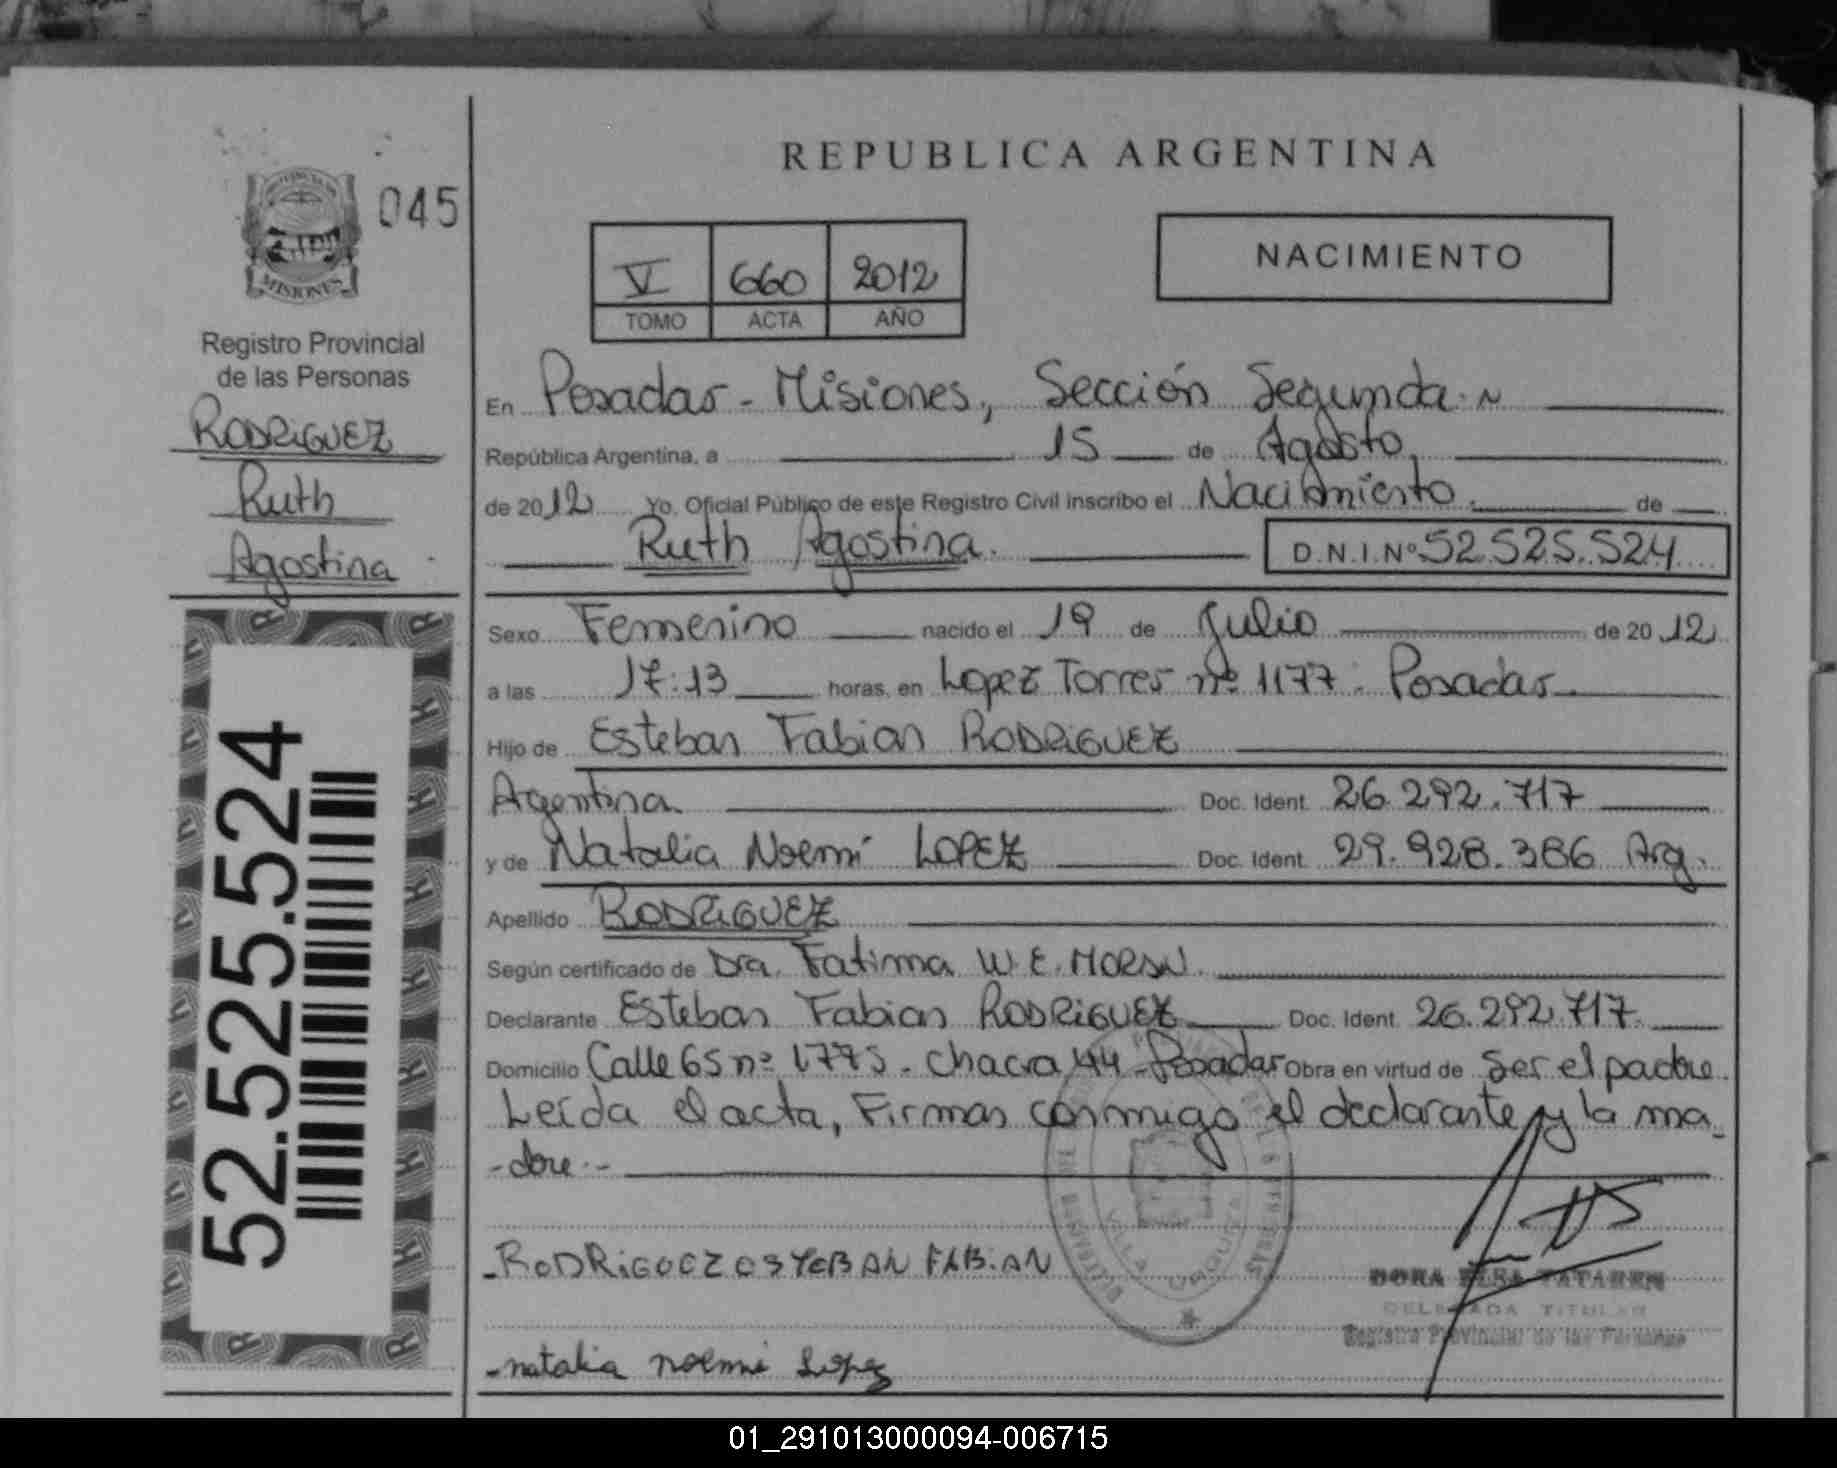 REPUBLICA ARGENTINA
045
MISIONES
Registro Provincial
de las Personas
RODRIGUEZ
Ruth
Agostina
52.525.524
V 660 2012
TOMO ACTA AÑO
NACIMIENTO
En Posadas - Misiones, Sección Segunda
República Argentina, a 15 de Agosto,
de 2012 Yo, Oficial Público de este Registro Civil inscribo el Nacimiento de
Ruth Agostina. D.N.I.Nº 52.525.524
Sexo Femenino nacido el 19 de Julio de 2012
a las 17:13 horas, en Lopez Torres nº 1177. Posadas
Hijo de Esteban Fabian RODRIGUEZ
Argentina Doc. Ident. 26.292.717
y de Natalia Noemi LOPEZ Doc. Ident. 29.928.386 Arg.
Apellido RODRIGUEZ
Según certificado de Dra. Fatima W. E.
Declarante Esteban Fabian RODRIGUEZ Doc. Ident. 26.292.717.
Domicilio Calle 65 nº 1775 - Chacra 44 - Posadas Obra en virtud de ser el padre.
Leída el acta, Firman conmigo el declarante y la ma-
-dre.-
-RODRIGUEZ ESTEBAN FABIAN
VILLA URQUIZA
DORA ELSA
DELEGADA TITULAR
Registro Provincial de las Personas
-natalia noemi Lopez
01_291013000094-006715